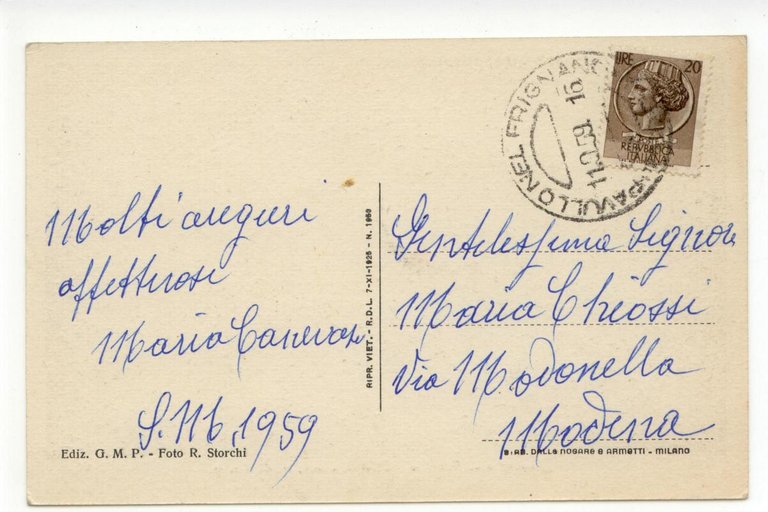 Molti auguri
affettuosi
Maria Canevazzi
S. M 6, 1959
Ediz. G. M. P. - Foto R. Storchi
RIPR. VIET. - R.D.L. 7-XI-1925 - N. 1950
PAVULLO NEL FRIGNANO
16
11.9.59
LIRE 20
REPVBBLICA
ITALIANA
Gentilissima Signora
Maria Chiossi
Via Modonella
Modena
DALLE NOGARE E ARMETTI - MILANO